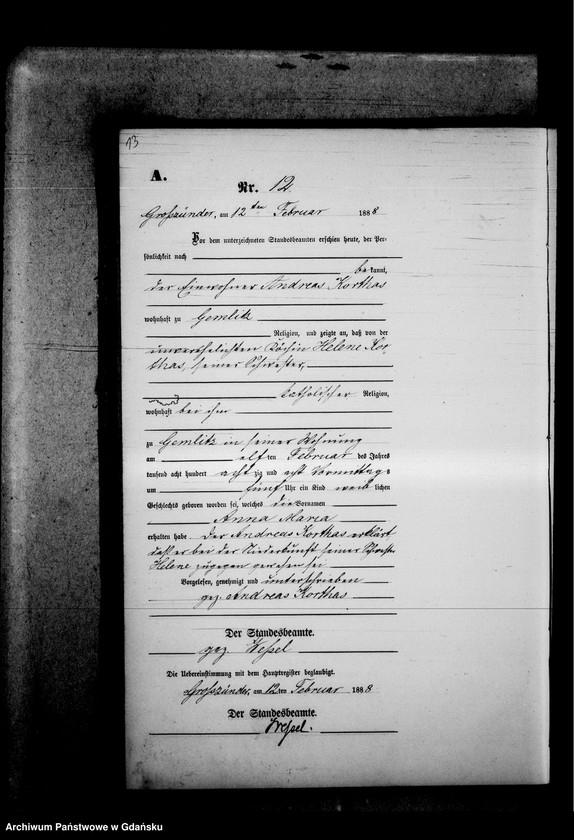 13
A.
Nr. 12.
Großzünder, am 12ten Februar 1888
Vor dem unterzeichneten Standesbeamten erschien heute, der Per-
sönlichkeit nach
bekannt,
der Einwohner Andreas Korthas
wohnhaft zu Gemlitz
Religion, und zeigte an, daß von der
unverehelichten Köchin Helene Kor-
thas, seiner Schwester,
katholischer Religion,
wohnhaft bei ihm
zu Gemlitz in seiner Wohnung
am elften Februar des Jahres
tausend acht hundert achtzig und acht Vormittags
um fünf Uhr ein Kind weiblichen
Geschlechts geboren worden sei, welches die Vornamen
Anna Maria
erhalten habe. Der Andreas Korthas erklärt
daß er bei der Niederkunft seiner Schwester
Helene zugegen gewesen sei
Vorgelesen, genehmigt und unterschrieben
gez. Andreas Korthas
Der Standesbeamte.
gez. Weßel
Die Uebereinstimmung mit dem Hauptregister beglaubigt.
Großzünder, am 12ten Februar 1888
Der Standesbeamte.
Weßel.
Archiwum Państwowe w Gdańsku